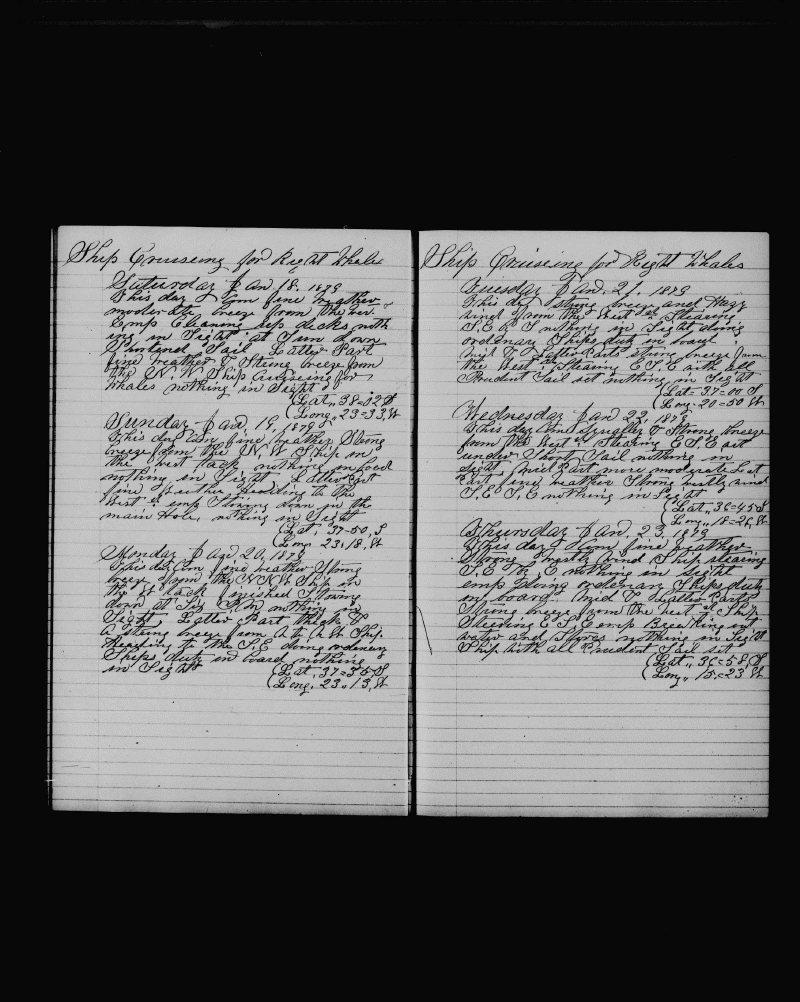 Ship Cruiseing for Right Whales
Saturday Jan 18. 1879
This day Com fine weather
moderate breeze from the
Emp Cleaning up decks noth
ing in Sight at Sun down
Shortened Sail Latter Part
fine weather & Strong breeze from
the N.W Ship Cruiseing for
Whales nothing in Sight
(Lat,, 38=02 S
(Long,, 23=33, W
Sunday Jan. 19, 1879
This day Com fine weather Strong
breeze from the N.W Ship on
the west tack nothing in bord
nothing in Sight Latter Part
fine weather Heading to the
West emp Stowing down in the
main Hole, nothing in Sight
(Lat, 37=50, S
(Long. 23,18, W
Monday Jan 20, 1879
This day Com fine weather Strong
breeze from the N.N.W Ship on
the W tack finished Stowing
down at Six P.M nothing in
Sight Latter Part thick &
a Strong breeze from Ship
Heading to the S.E doing ordenary
Ships duty in board nothing
in Sight (Lat, 37=35 S
(Long, 23,,13, W
Ship Cruiseing for Right Whales
Tuesday Jan, 21. 1879
This day strong breeze and Hazy
wind from the West Stearing
S.E & S nothing in Sight doing
ordenary Ships duty in board
mid & Latter Parts strong breeze from
the West Stearing E S E with all
Prudent Sail set nothing in Sight
(Lat= 37=00 S
(Long. 20=50 W
Wednesday Jan 22, 1879
This day Com Squally & Strong breeze
from the West Stearing E S E set
under Short Sail nothing in
Sight mid Part more moderate Last
Part fine weather Strong westly wind
S, E, S, E nothing in Sight
(Lat,, 36=45 S
Long,, 18=26, W
Thursday Jan, 23, 1879
This day Com fine weather
Strong westly wind Ship stearing
S, E, by E nothing in Sight
emp doing ordenary Ships duty
in board. Mid & Latter Parts
Strong breeze from the West Ship
Steering E S, E emp Breaking out
water and Stores nothing in Sight
Ship with all Prudent Sail set
(Lat,, 36=58 S
(Long,, 15,=23 W